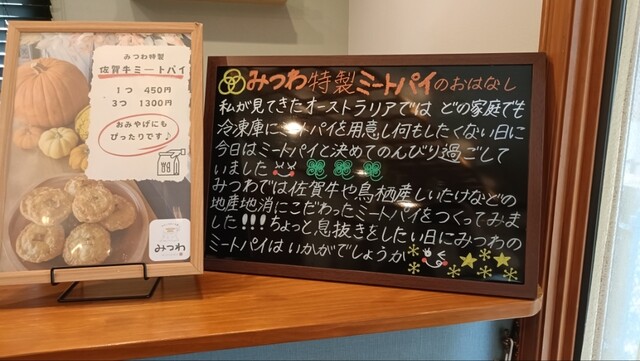 みつわ特製
佐賀牛ミートパイ
1つ 450円
3つ 1300円
おみやげにも
ぴったりです♪
みつわ
みつわ特製ミートパイのおはなし
私が見てきたオーストラリアでは どの家庭でも
冷凍庫にミートパイを用意し何もしたくない日に
今日はミートパイと決めてのんびり過ごして
いました
みつわでは佐賀牛や鳥栖産しいたけなどの
地産地消にこだわったミートパイをつくってみま
した!!!ちょっと息抜きをしたい日にみつわの
ミートパイはいかがでしょうか